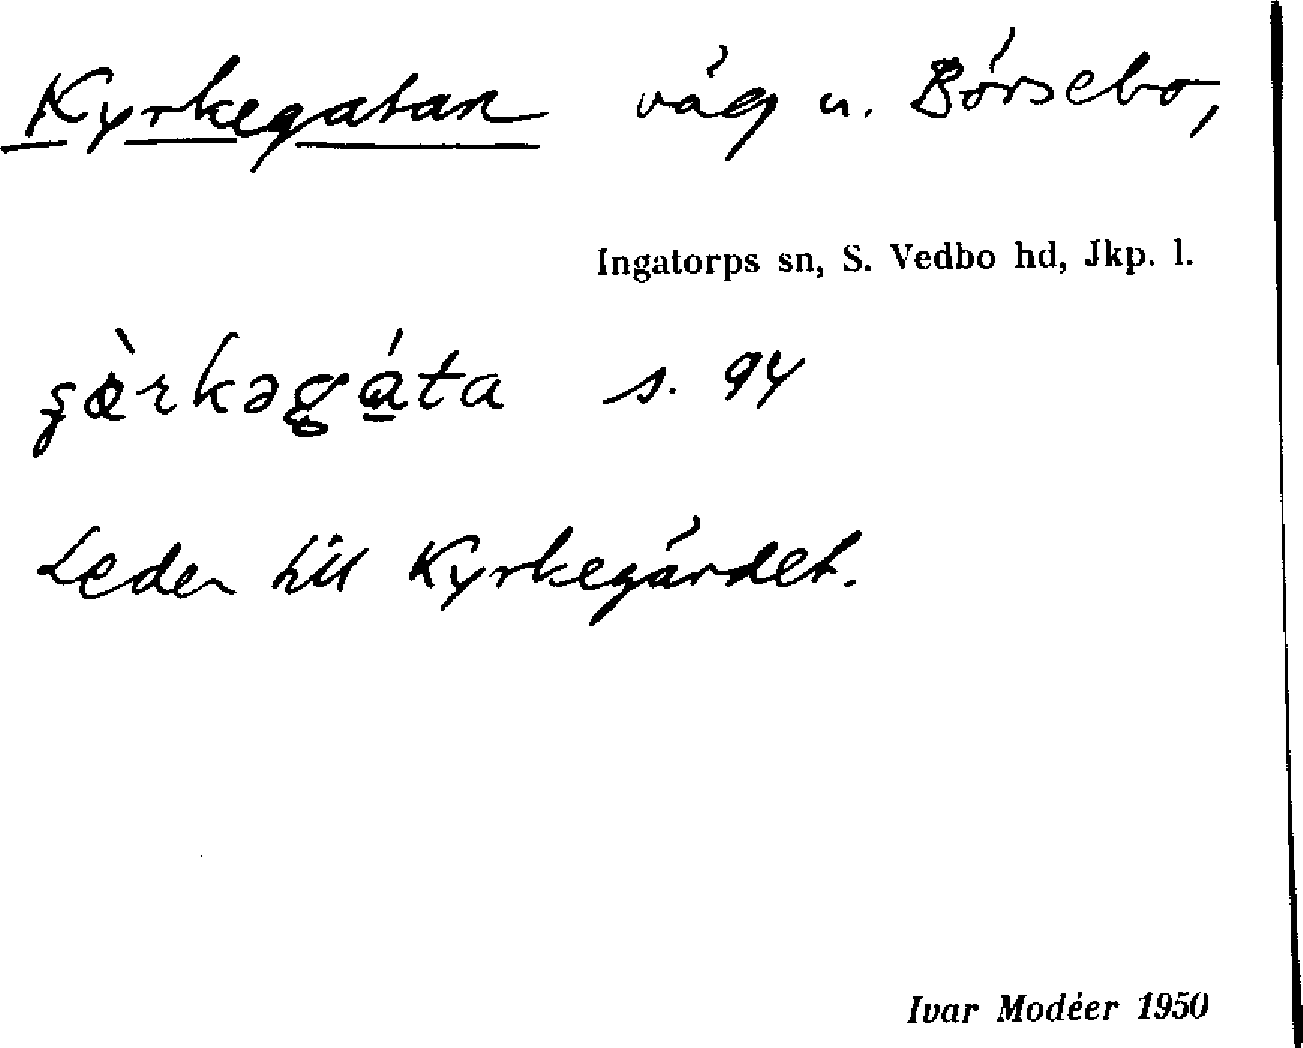 Kyrkegatan väg u. Börsebo,
Ingatorps sn, S. Vedbo hd, Jkp. l.
s. 94
Leder till Kyrkegärdet.
Ivar Modéer 1950